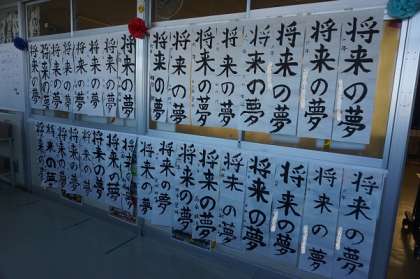 将来の夢
将来の夢
将来の夢
将来の夢
将来の夢
将来の夢
将来の夢
将来の夢
将来の夢
将来の夢
将来の夢
将来の夢
将来の夢
将来の夢
将来の夢
将来の夢
将来の夢
将来の夢
将来の夢
将来の夢
将来の夢
将来の夢
将来の夢
将来の夢
将来の夢
将来の夢
将来の夢
将来の夢
将来の夢
将来の夢
将来の夢